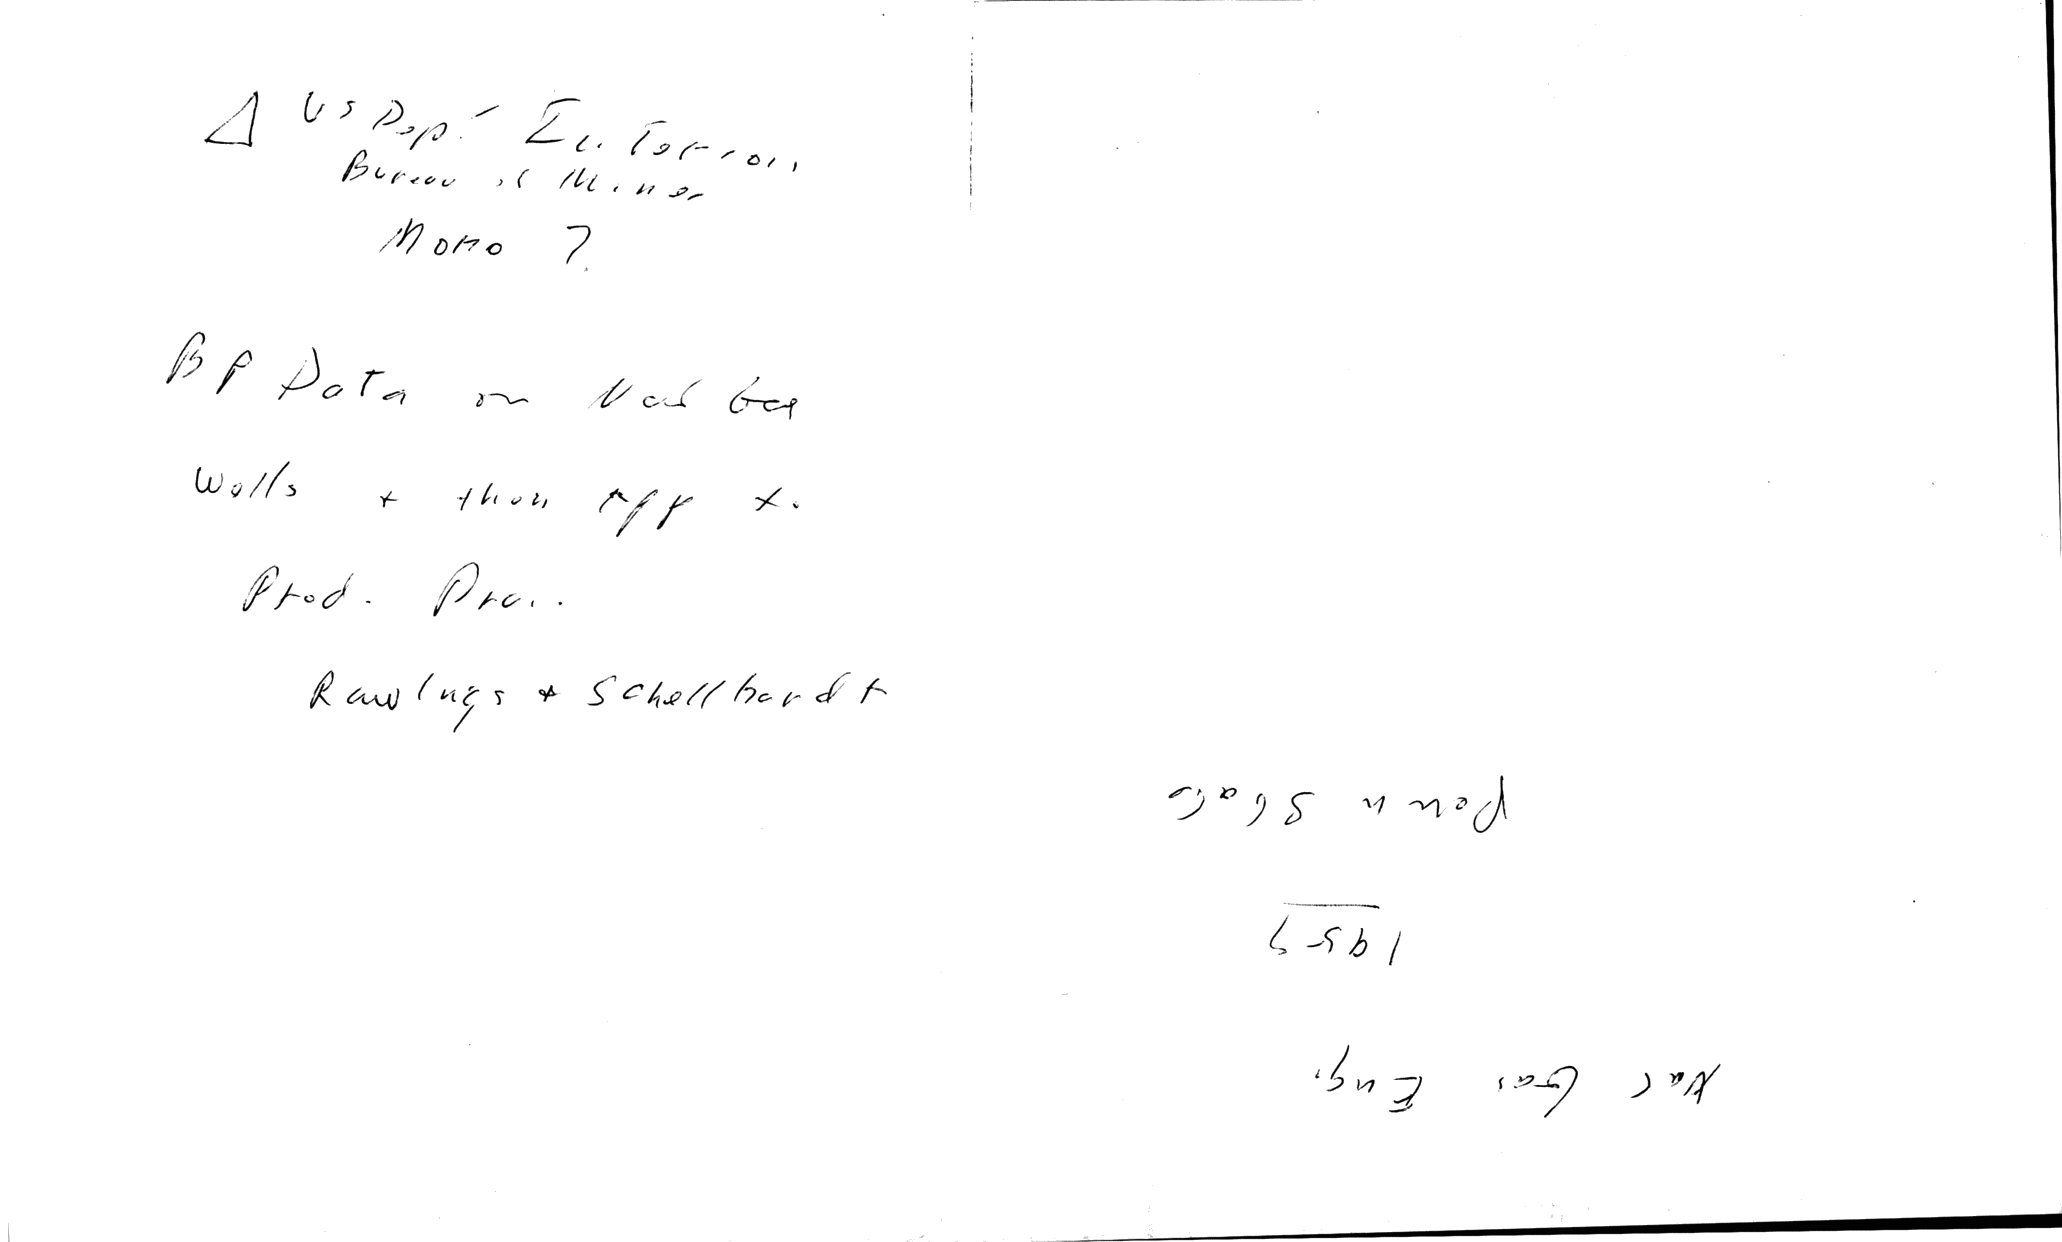 Δ US Dept Interior
Bureau of Mines
Mono 7
BP Data on Nat Gas
Wells + their App to
Prod. Pra..
Rawlings + Schellhardt
Nat Gas Eng.
1957
Penn State